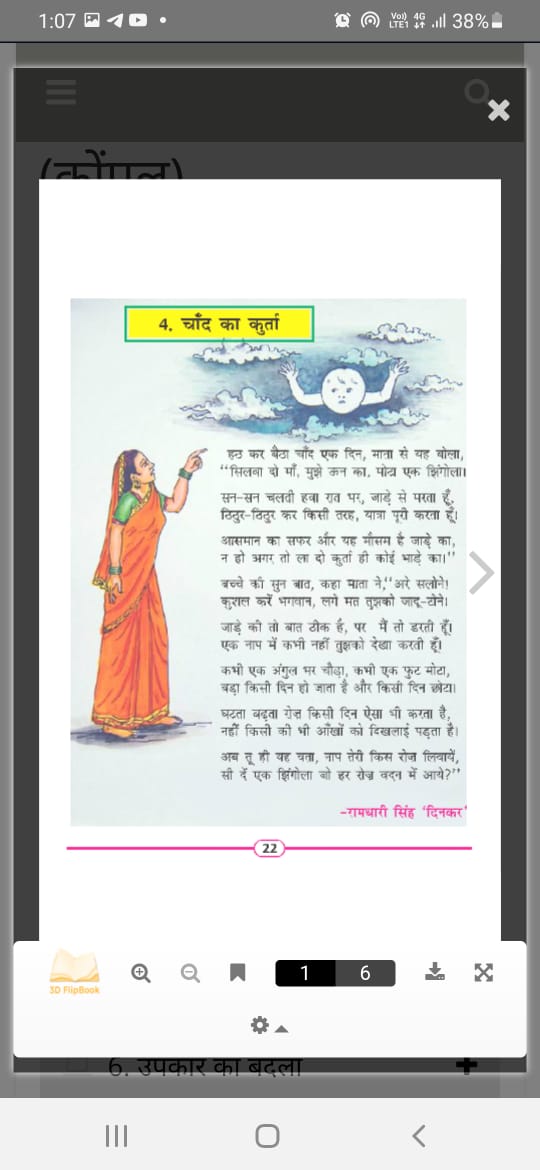 1:07
Vo)) 4G
LTE1
38%
(कोंपल)
4. चाँद का कुर्ता
हठ कर बैठा चाँद एक दिन, माता से यह बोला,
“सिलवा दो माँ, मुझे ऊन का, मोटा एक झिंगोला।
सन-सन चलती हवा रात भर, जाड़े से मरता हूँ,
ठिठुर-ठिठुर कर किसी तरह, यात्रा पूरी करता हूँ।
आसमान का सफर और यह मौसम है जाड़े का,
न हो अगर तो ला दो कुर्ता ही कोई भाड़े का।”
बच्चे की सुन बात, कहा माता ने, “अरे सलोने!
कुशल करें भगवान, लगे मत तुझको जादू-टोने।
जाड़े की तो बात ठीक है, पर मैं तो डरती हूँ।
एक नाप में कभी नहीं तुझको देखा करती हूँ।
कभी एक अंगुल भर चौड़ा, कभी एक फुट मोटा,
बड़ा किसी दिन हो जाता है और किसी दिन छोटा।
घटता बढ़ता रोज़ किसी दिन ऐसा भी करता है,
नहीं किसी की भी आँखों को दिखलाई पड़ता है।
अब तू ही यह बता, नाप तेरी किस रोज लिवायें,
सी दें एक झिंगोला जो हर रोज़ बदन में आये?”
-रामधारी सिंह ‘दिनकर’
22
3D FlipBook
1 6
6. उपकार का बदला